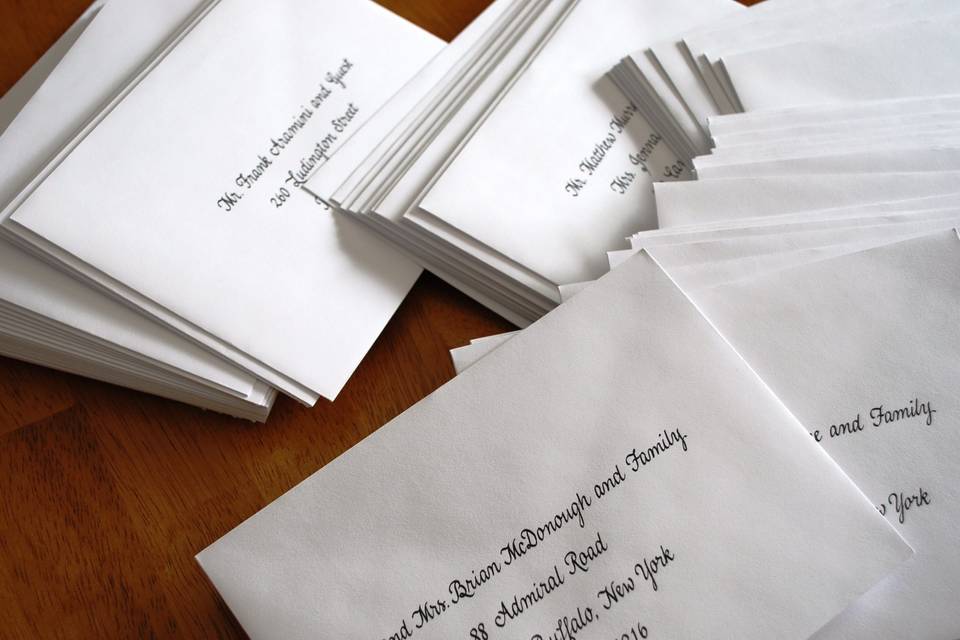 Mr. Frank Aramini and Guest
260 Ludington Street
Mr. Matthew
Mrs.
and Mrs. Brian McDonough and Family
88 Admiral Road
Buffalo, New York
and Family
York